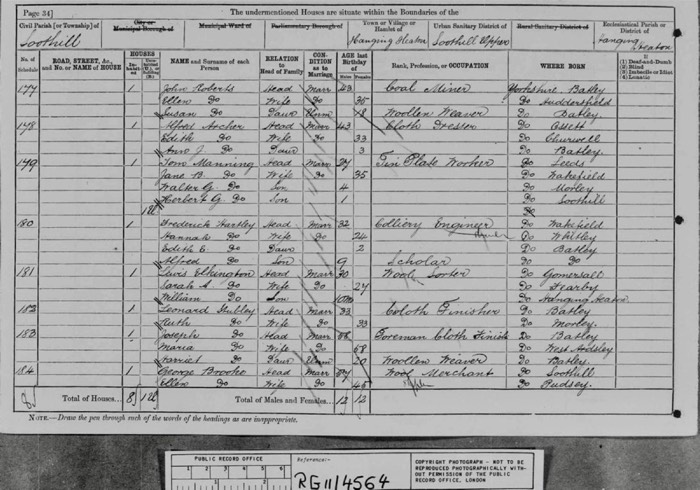 Page 34] The undermentioned Houses are situate within the Boundaries of the
Civil Parish [or Township] of City or Municipal Borough of Municipal Ward of Parliamentary Borough of Town or Village or Hamlet of Urban Sanitary District of Rural Sanitary District of Ecclesiastical Parish or District of
Soothill Hanging Heaton Soothill Upper Hanging Heaton
No. of Schedule ROAD, STREET, &c., and No. or NAME of HOUSE HOUSES Inhabited NAME and Surname of each Person RELATION to Head of Family CONDITION as to Marriage AGE last Birthday of Males Females Rank, Profession, or OCCUPATION WHERE BORN If (1) Deaf-and-Dumb (2) Blind (3) Imbecile or Idiot (4) Lunatic
177 1 John Roberts Head Marr 43 Coal Miner Yorkshire, Batley
Ellen Do Wife Do 35 Do Huddersfield
Susan Do Daur Unm 18 Woollen Weaver Do Batley
178 1 Alfred Archer Head Marr 43 Cloth Presser Do Ossett
Edith Do Wife Do 33 Do Churwell
Ann J. Do Daur 3 Do Batley
179 1 Tom Manning Head Marr 27 Tin Plate Worker Do Leeds
Jane B. Do Wife Do 35 Do Wakefield
Walter G. Do Son 4 Do Morley
Herbert G. Do Son 1 Do Soothill
Do
180 1 Frederick Hartley Head Marr 32 Colliery Engineer Do Wakefield
Hannah Do Wife Do 24 Do Whitley
Edith E. Do Daur 2 Do Batley
Alfred Do Son 9 Scholar Do Do
181 1 Lewis Elkington Head Marr 30 Wool Sorter Do Gomersall
Sarah A. Do Wife Do 27 Do Fearby
William Do Son 10m Do Hanging Heaton
182 1 Leonard Gubley Head Marr 33 Cloth Finisher Do Batley
Ruth Do Wife Do 33 Do Morley
183 1 Joseph Do Head Marr 68 Foreman Cloth Finish Do Batley
Maria Do Wife Do 68 Do West Ardsley
Harriet Do Daur Unm 20 Woollen Weaver Do Batley
184 1 George Brooke Head Marr 57 Wool Merchant Do Soothill
Ellen Do Wife Do 45 Do Pudsey
8 Total of Houses... 8 Total of Males and Females... 12 12
NOTE.—Draw the pen through such of the words of the headings as are inappropriate.
PUBLIC RECORD OFFICE
1 2 3 4 5 6
1 2
Reference:-
RG11/4564
COPYRIGHT PHOTOGRAPH - NOT TO BE REPRODUCED PHOTOGRAPHICALLY WITHOUT PERMISSION OF THE PUBLIC RECORD OFFICE, LONDON